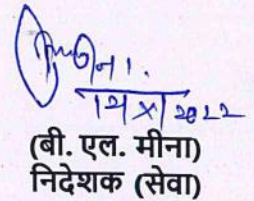 मीना
2022
(बी. एल. मीना)
निदेशक (सेवा)